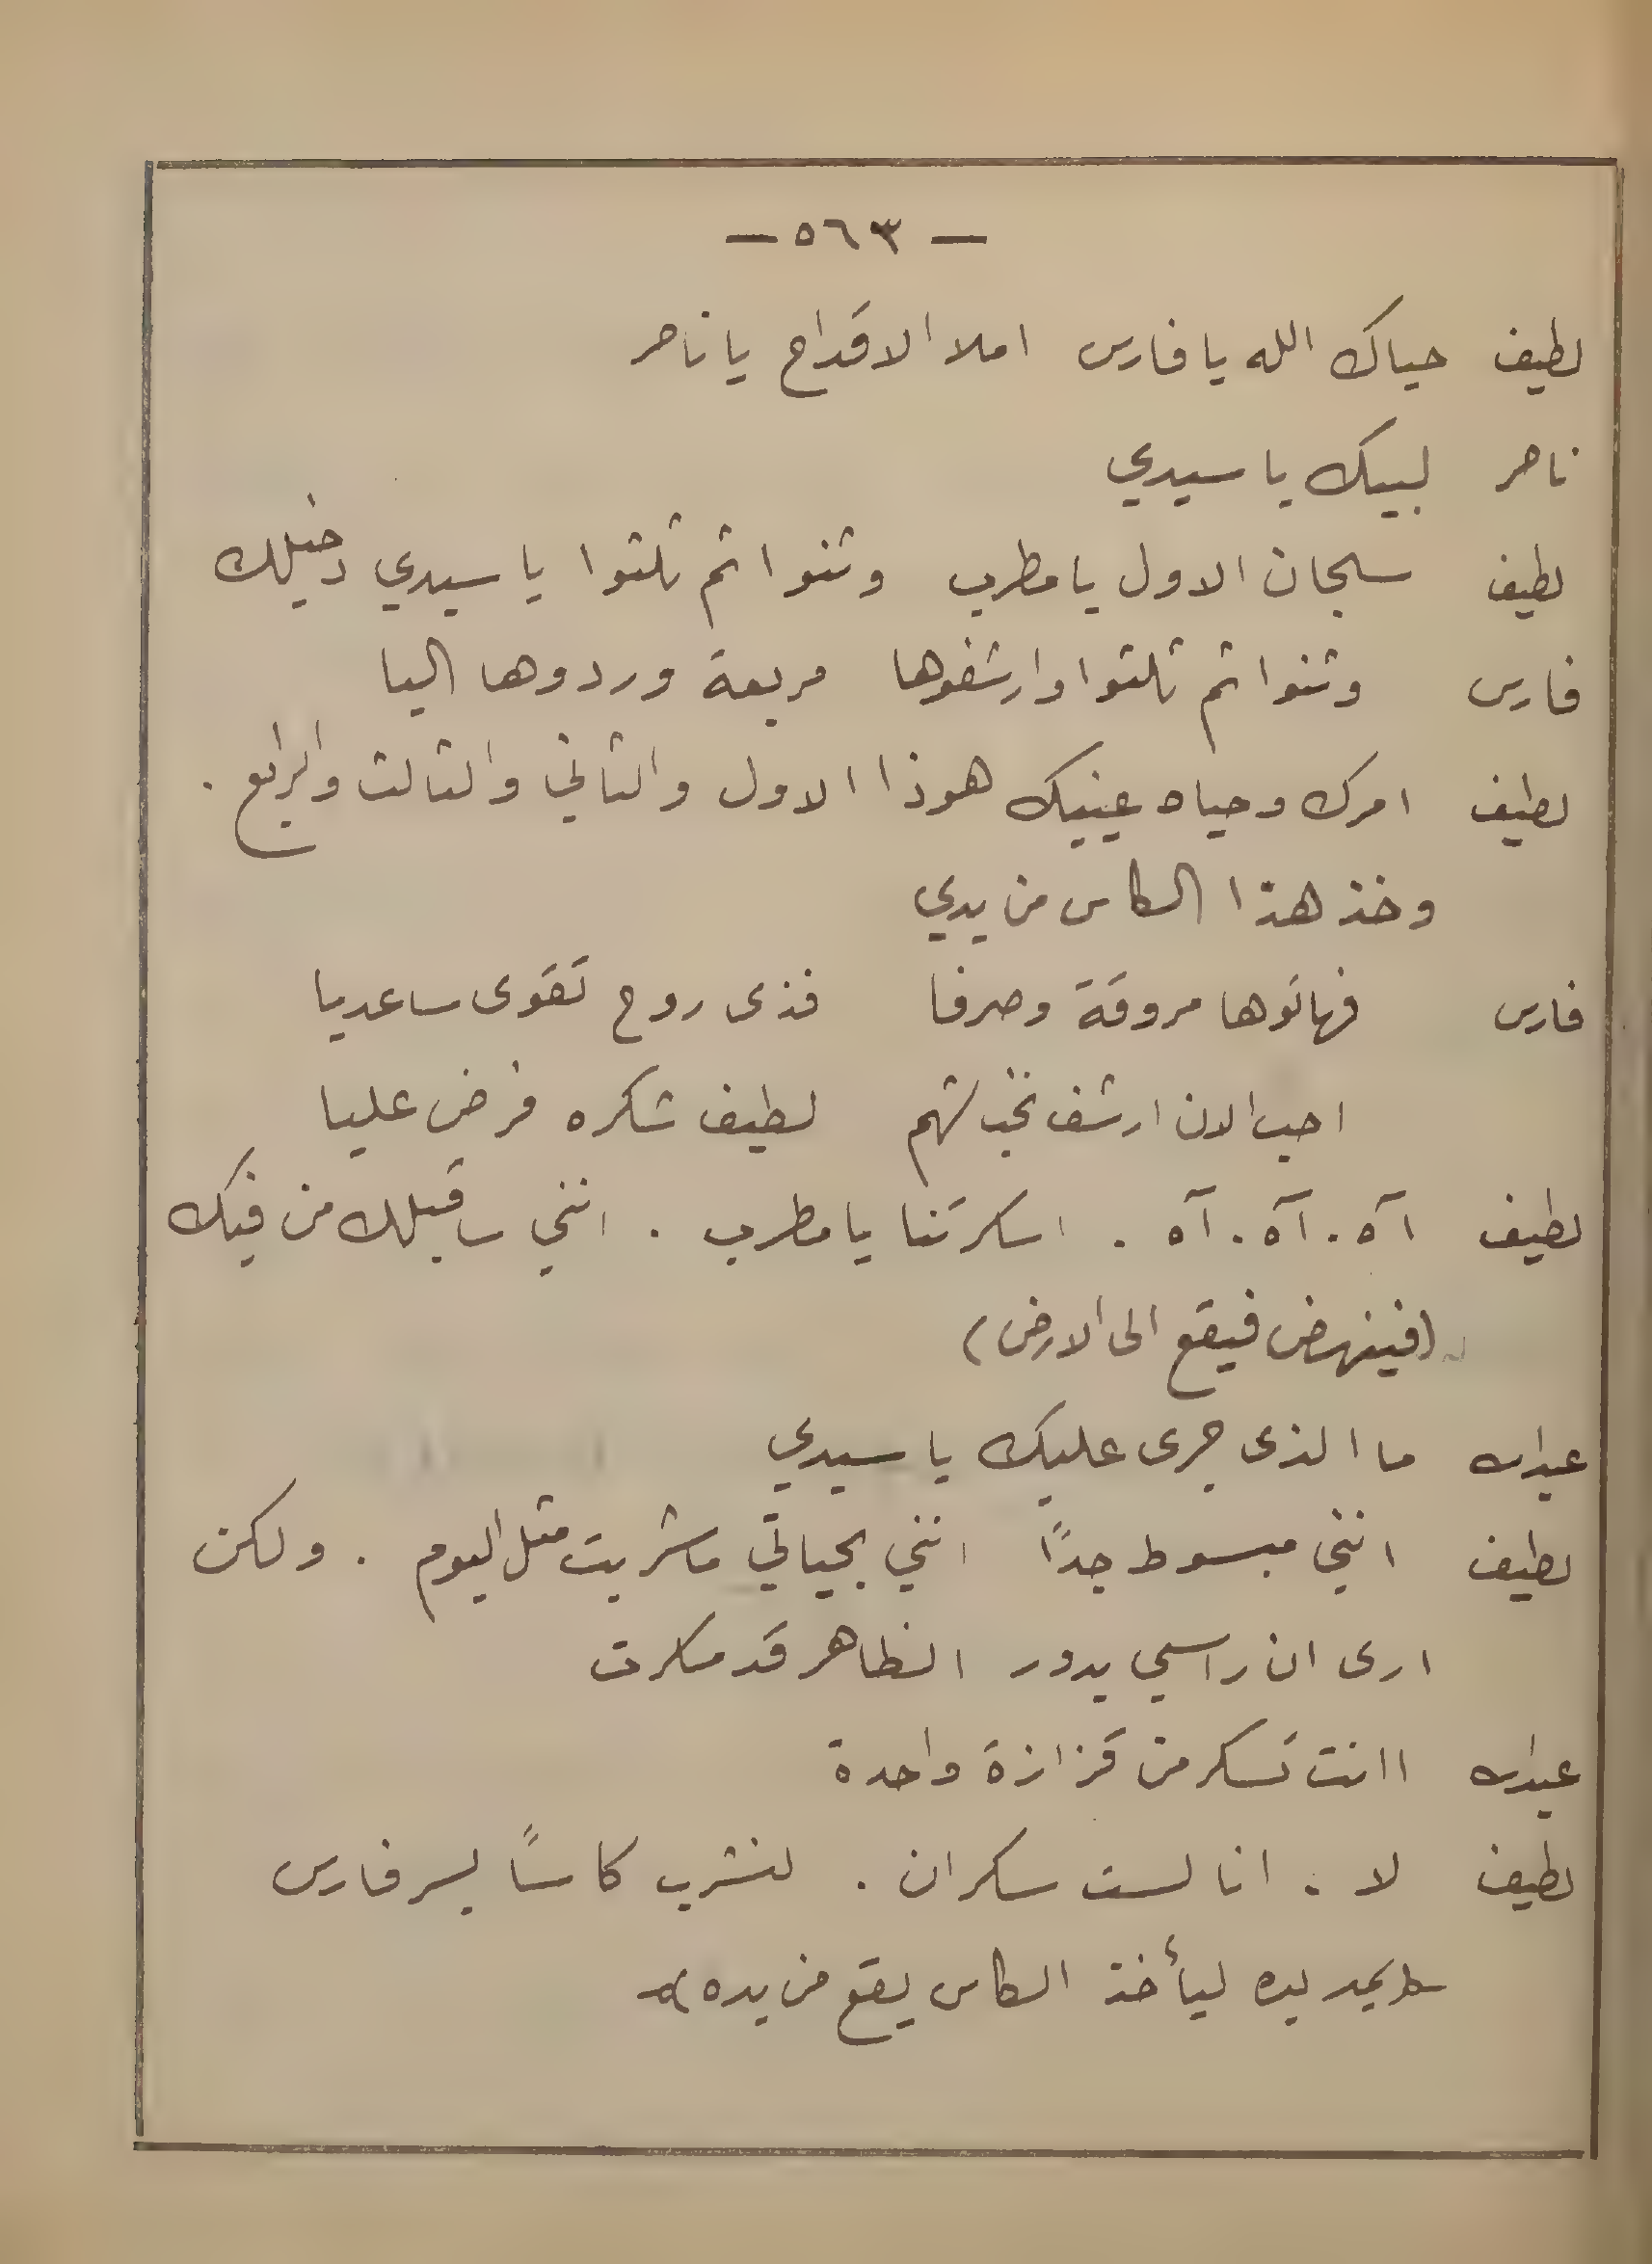 — ٥٦٣ —
لطيف حياك الله يا فارس املا الاقداح يا ناصر
ناصر لبيك يا سيدي
لطيف سبحان الاول يا مطرب وثنوا ثم ثلثوا يا سيدي دخيلك
فارس وثنوا ثم ثلثوا وارشفوها مربعة وردوها اليا
لطيف امرك وحياه عينيك هوذا الاول والثاني والثالث والرابع .
وخذ هذا الكاس من يدي
فارس فهاتوها مروقة وصرفا فذى روح تقوى ساعديا
احب الان ارشف نخب شهم لطيف شكره فرض عليا
لطيف آه . آه . آه . اسكرتنا يا مطرب . انني ساقبلك من فيك
(فينهض فيقع الى الارض)
عبدالله ما الذى جرى عليك يا سيدي
لطيف انني مبسوط جدًا انني بحياتي ما شربت مثل اليوم . ولكن
ارى ان راسي يدور الظاهر قد سكرت
عبدالله اانت تسكر من قزازة واحدة
لطيف لا . انا لست سكران . لنشرب كاسًا بسر فارس
(يمد يده ليأخذ الكاس يقع من يده)